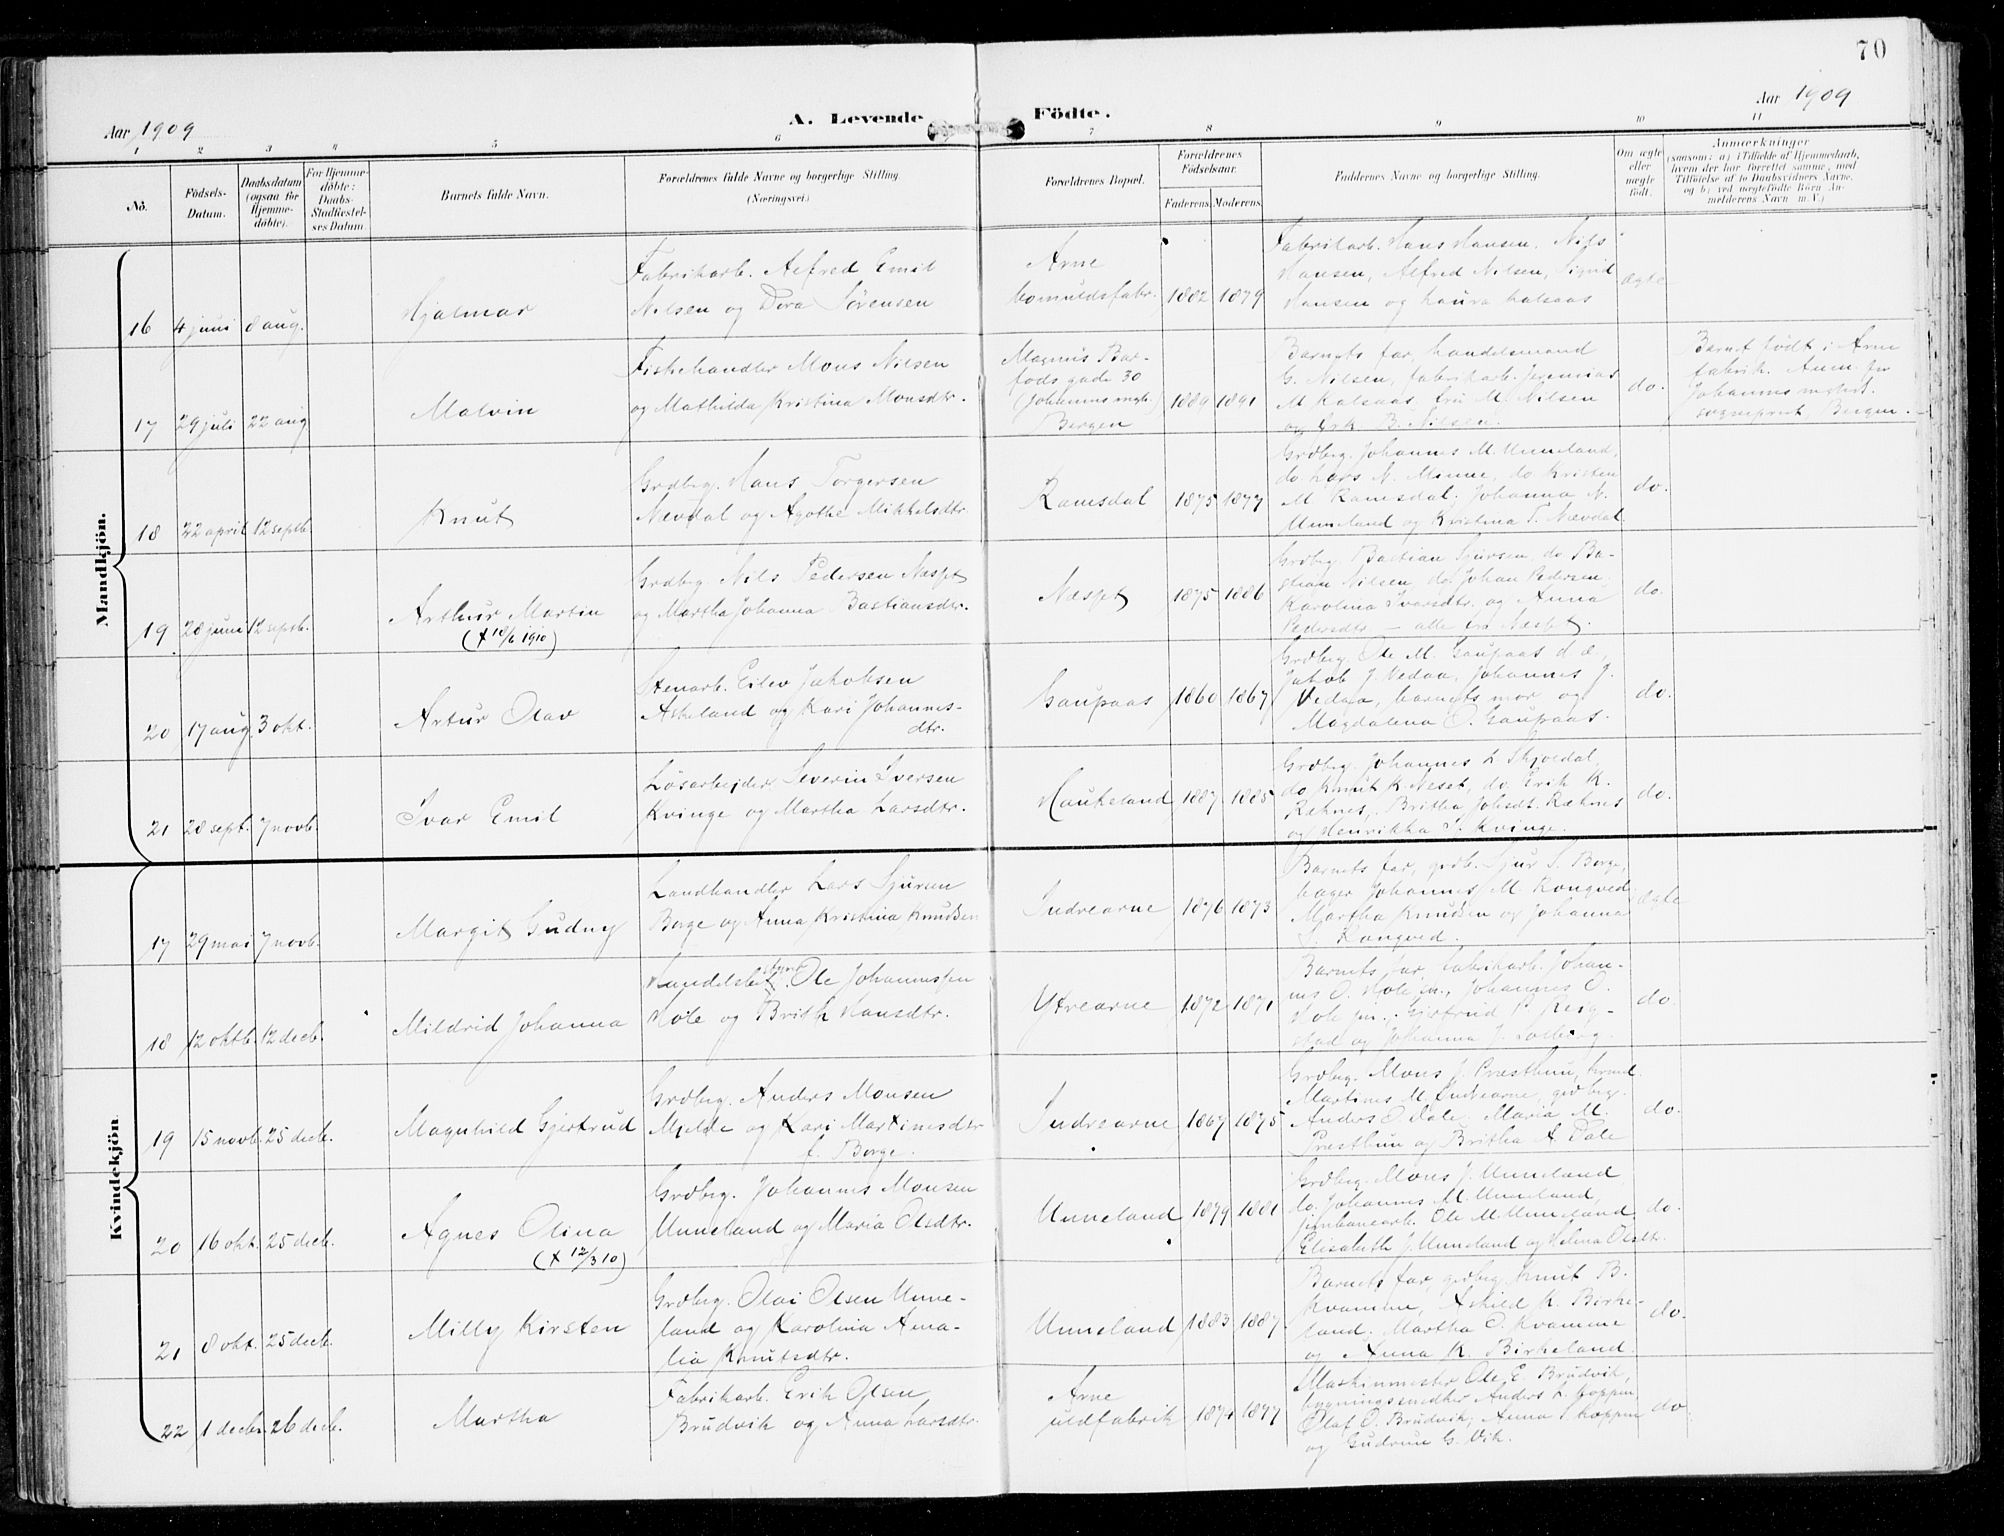 70
Aar 1909
A. Levende Födte.
Aar 1909
1 2 3 4 5 6 7 8 9 10 11
No. Födsels-Datum. Daabsdatum (ogsaa for Hjemmedöbte). For Hjemmedöbte: Daabs-Stadfestelses Datum Barnets fulde Navn. Forældrenes fulde Navne og borgerlige Stilling. (Næringsvei.) Forældrenes Bopæl. Forældrenes Födselsaar. Faderens. Moderens. Faddernes Navne og borgerlige Stilling. Om ægte eller uægte födt. Anmærkninger (saasom: a) i Tilfælde af Hjemmedaab, hvem der har forrettet samme, med Tilföielse af to Daabsvidners Navne, og b) ved uægtefödte Börn Anmelderens Navn m. V.)
Mandkjön.
16 4 juni 8 aug. Hjalmar
Fabrikarb. Alfred Emil
Nilsen og Dora Sørensen
Arne
bomuldsfabr. 1882 1879
Fabrikarb. Hans Hansen, Nils
Hansen, Alfred Nilsen, Sigrid
Hansen og Laura Kalsaas
ægte
17 29 juli 22 aug Malvin
Fiskehandler Mons Nilsen
og Mathilda Kristina Monsdtr.
Magnus Bar-
fods gade 30
(Johannes mgh.)
Bergen
1889 1891
Barnets far, handelsmand
G. Nilsen, fabrikarb. Jeremias
M Kalsaas, fru M. Nilsen
og frk B. Nilsen.
do.
Barnet født i Arne
fabrik. Anm. fra
Johannes
sogneprest, Bergen.
18 22 april 12 septb. Knut
Grdbrg. Hans Torgersen
Nævdal og Agothe Mikkelsdtr.
Ramsdal 1875 1877
Grdbrg. Johannes M. Unneland,
do Lars N. Minne, do Kristen
M Ramsdal, Johanna N.
Unneland og Kristina T. Nævdal
do.
19 28 juni 12 septb. Arthur Martin
(† 18/6 1910)
Grdbrg Nils Pedersen Næset
og Martha Johanna Bastiansdtr.
Næset 1875 1886
Grdbrg. Bastian Sjursen, do Ba-
stian Nilsen, do Johan Pedersen
Karolina Ivarsdtr. og Anna
Pedersdtr – alle fra Næset.
do.
20 17 aug. 3 okt. Artur Olav
Stenarb. Eilev Jakobsen
Askeland og Kari Johannes-
dtr.
Gaupaas 1860 1867
Grdbrg. Ole M. Gaupaas d.e.,
Jakob J. Vedaa, Johannes J.
Vedaa, barnets mor og
Magdalena O. Gaupaas.
do.
21 28 sept. 7 novb. Ivar Emil
Løsarbejder Severin Iversen
Kvinge og Martha Larsdtr.
Haukeland 1887 1885
Grdbrg. Johannes L Skjoldal,
do Knut K. Neset, do. Erik K.
Ræknes, Britha Johsdt. Ræknes
og Henrikka I. Kvinge.
do.
Kvindekjön
17 29 mai 7 novb. Margit Gudny
Landhandler Lars Sjursen
Borge og Anna Kristina Knudsen
Indrearne 1876 1873
Barnets far, grdb. Sjur S. Borge,
bager Johannes M. Rongved
Martha Knudsen og Johanna
S. Rongved.
ægte
18 12 oktb. 12 decb. Mildrid Johanna
Handelsbestyrer Ole Johannessen
Hole og Brith Hansdtr.
Ytrearne 1872 1871
Barnets far, fabrikarb. Johan-
nes O. Hole sen., Johannes O.
Hole jun., Gjertrud B. Reig-
stad og Johanna J.
do
19 15 novb. 25 decb. Magnhild Gjertrud
Grdbrg. Anders Monsen
Mjelde og Kari Martinesdtr
f. Borge.
Indrearne 1867 1875
Grdbrg. Mons J. Præsthun,
Martines M. Indrearne, grdbrg.
Anders O. Dale, Maria M.
Præsthun og Britha A. Dale
do.
20 16 okt. 25 decb. Agnes Olina
(† 12/3 10)
Grdbrg. Johannes Monsen
Unneland og Maria Olsdtr.
Unneland 1879 1881
Grdbrg. Mons J. Unneland
do. Johannes M. Unneland,
jernbanearb. Ole M. Unneland,
Elisabeth J. Unneland og Helena Olsdtr.
do.
21 8 okt. 25 decb. Milly Kirsten
Grdbrg. Olai Olsen Unne-
land og Karolina Ama-
lia Knutsdtr.
Unneland 1883 1887
Barnets far, grdbrg Knut B.
Kvamme, Askild K. Birke-
land, Martha O. Kvamme
og Anna K. Birkeland.
do.
22 1 decbr. 26 decb. Martha
Fabrikarb. Erik Olsen
Brudvik og Anna Larsdtr.
Arne
uldfabrik 1874 1877
Maskinmester Ole E. Brudvik,
bygningssnedker Anders L. Hoppen
Olaf O. Brudvik, Anna Hoppen
og Gudrun G. Vik.
do.